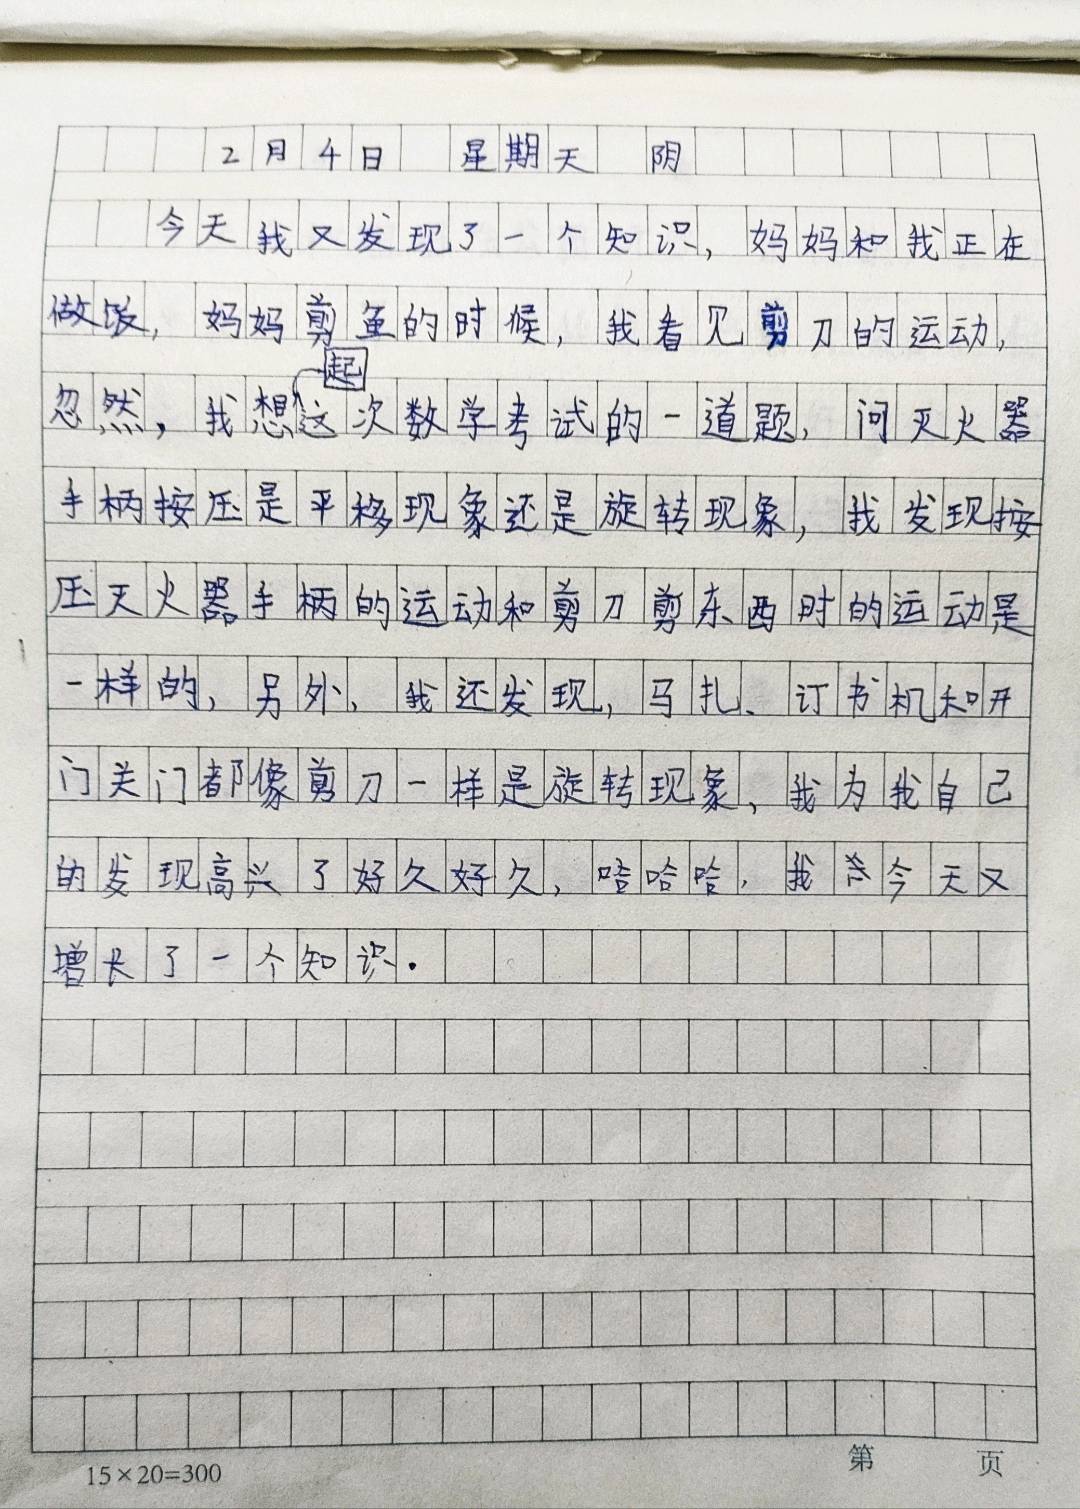 2月4日 星期天 阴
今天我又发现了一个知识，妈妈和我正在
做饭，妈妈剪鱼的时候，我看见剪刀的运动，
忽然，我想起这次数学考试的一道题，问灭火器
手柄按压是平移现象还是旋转现象，我发现按
压灭火器手柄的运动和剪刀剪东西时的运动是
一样的，另外，我还发现，马扎、订书机和开
门关门都像剪刀一样是旋转现象，我为我自己
的发现高兴了好久好久，哈哈哈，我今天又
增长了一个知识.
15×20=300
第 页